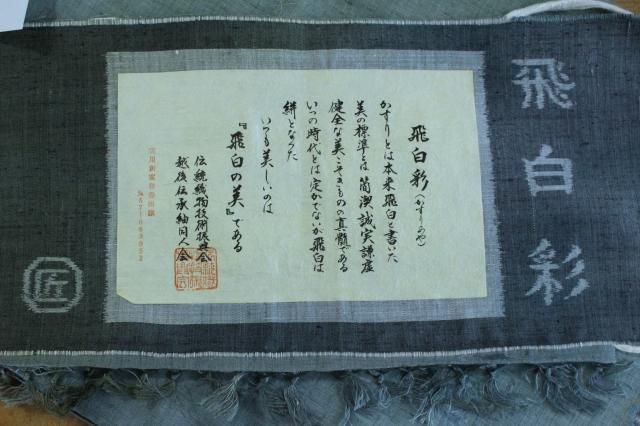 飛白彩
飛白彩（かすりあや）
かすりとは本来飛白と書いた
美の標準とは簡潔誠実謙虚
健全な美こそきものの真髄である
いつの時代とは定かでないが飛白は
絣となった
いつも美しいのは
『飛白の美』である
伝統織物技術振興会
越後伝承紬同人会
匠